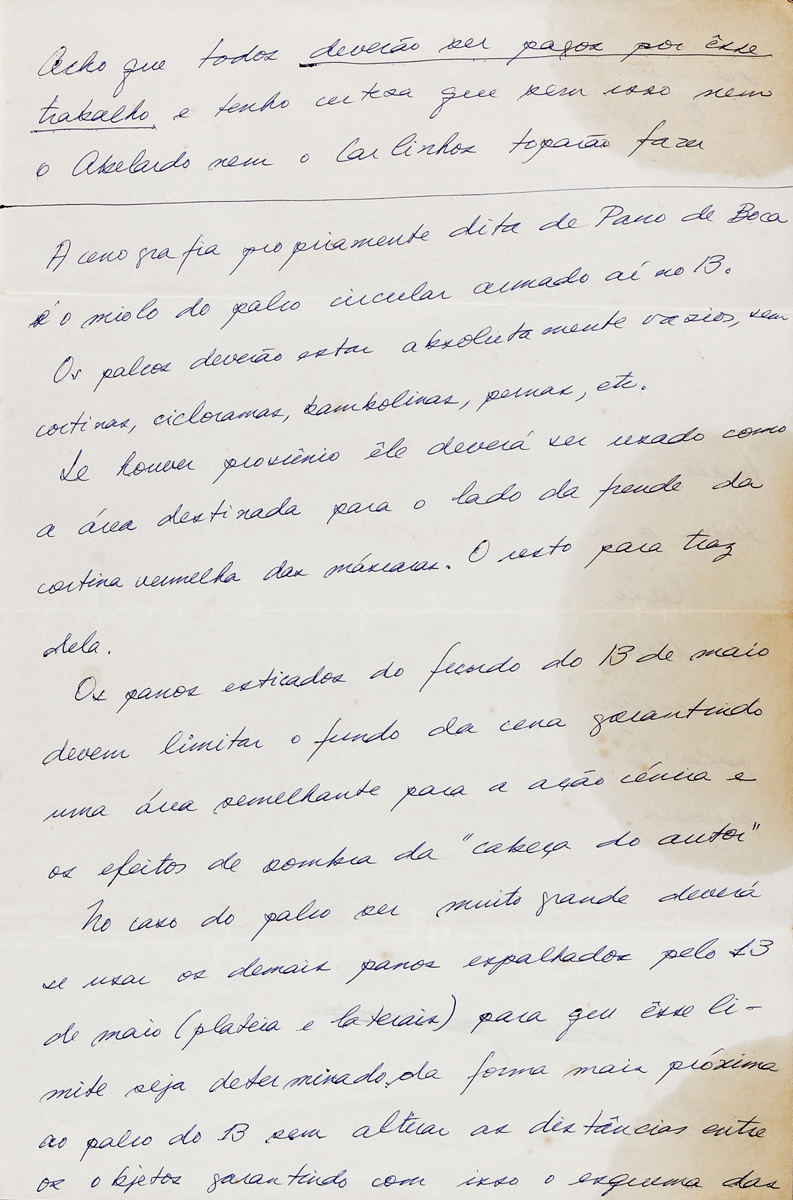 Acho que todos deverão ser pagos por êsse
trabalho e tenho certeza que sem isso nem
o Abelardo nem o Carlinhos toparão fazer
A cenografia propriamente dita de Pano de Boca
é o miolo do palco circular armado aí no 13.
Os palcos deverão estar absolutamente vazios, sem
cortinas, cicloramas, bambolinas, pernas, etc.
Se houver proscênio êle deverá ser usado como
a área destinada para o lado da frende da
cortina vermelha das máscaras. O resto para traz
dela.
Os panos esticados do fundo do 13 de maio
devem limitar o fundo da cena garantindo
uma área semelhante para a ação cênica e
os efeitos de sombra da "cabeça do autor"
No caso do palco ser muito grande deverá
se usar os demais panos espalhados pelo 13
de maio (plateia e laterais) para que êsse li-
mite seja determinado da forma mais próxima
ao palco do 13 sem alterar as distâncias entre
os objetos garantindo com isso o esquema das